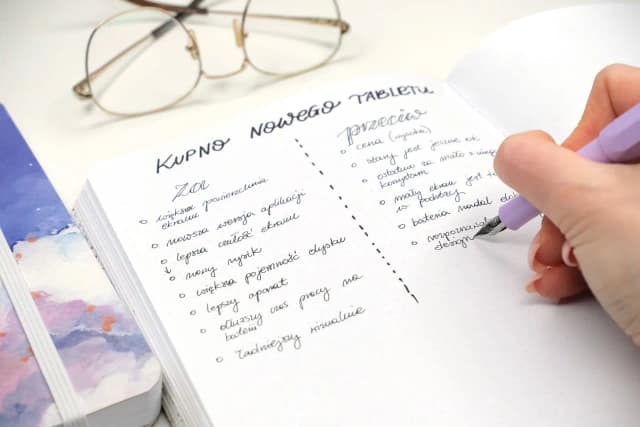 KUPNO NOWEGO TABLETU
Za
większa powierzchnia
ekranu
nowsza wersja aplikacji
lepsza czułość ekranu
nowy rysik
większa pojemność dysku
lepszy aparat
dłuższy czas pracy na
baterii
ładniejszy wizualnie
przeciw
cena (wysoka)
stary jest jeszcze ok
ostatnio za mało z niego
korzystam
mały ekran jest
w podróży
bateria nadal
rozpoznawalny
design